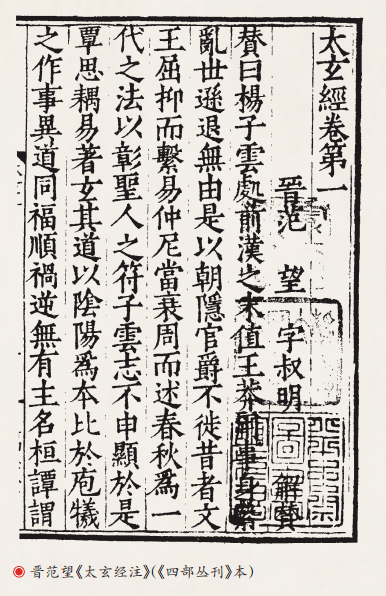 太玄經卷第一
晉范 望 字叔明 解贊
贊曰楊子雲處前漢之末值王莽
亂世遜退無由是以朝隱官爵不徙昔者文
王屈抑而繫易仲尼當衰周而述春秋為一
代之法以彰聖人之符子雲志不申顯於是
覃思耦易著玄其道以陰陽爲本比於庖犧
之作事異道同福順禍逆無有主名桓譚謂
晋范望《太玄经注》(《四部丛刊》本)